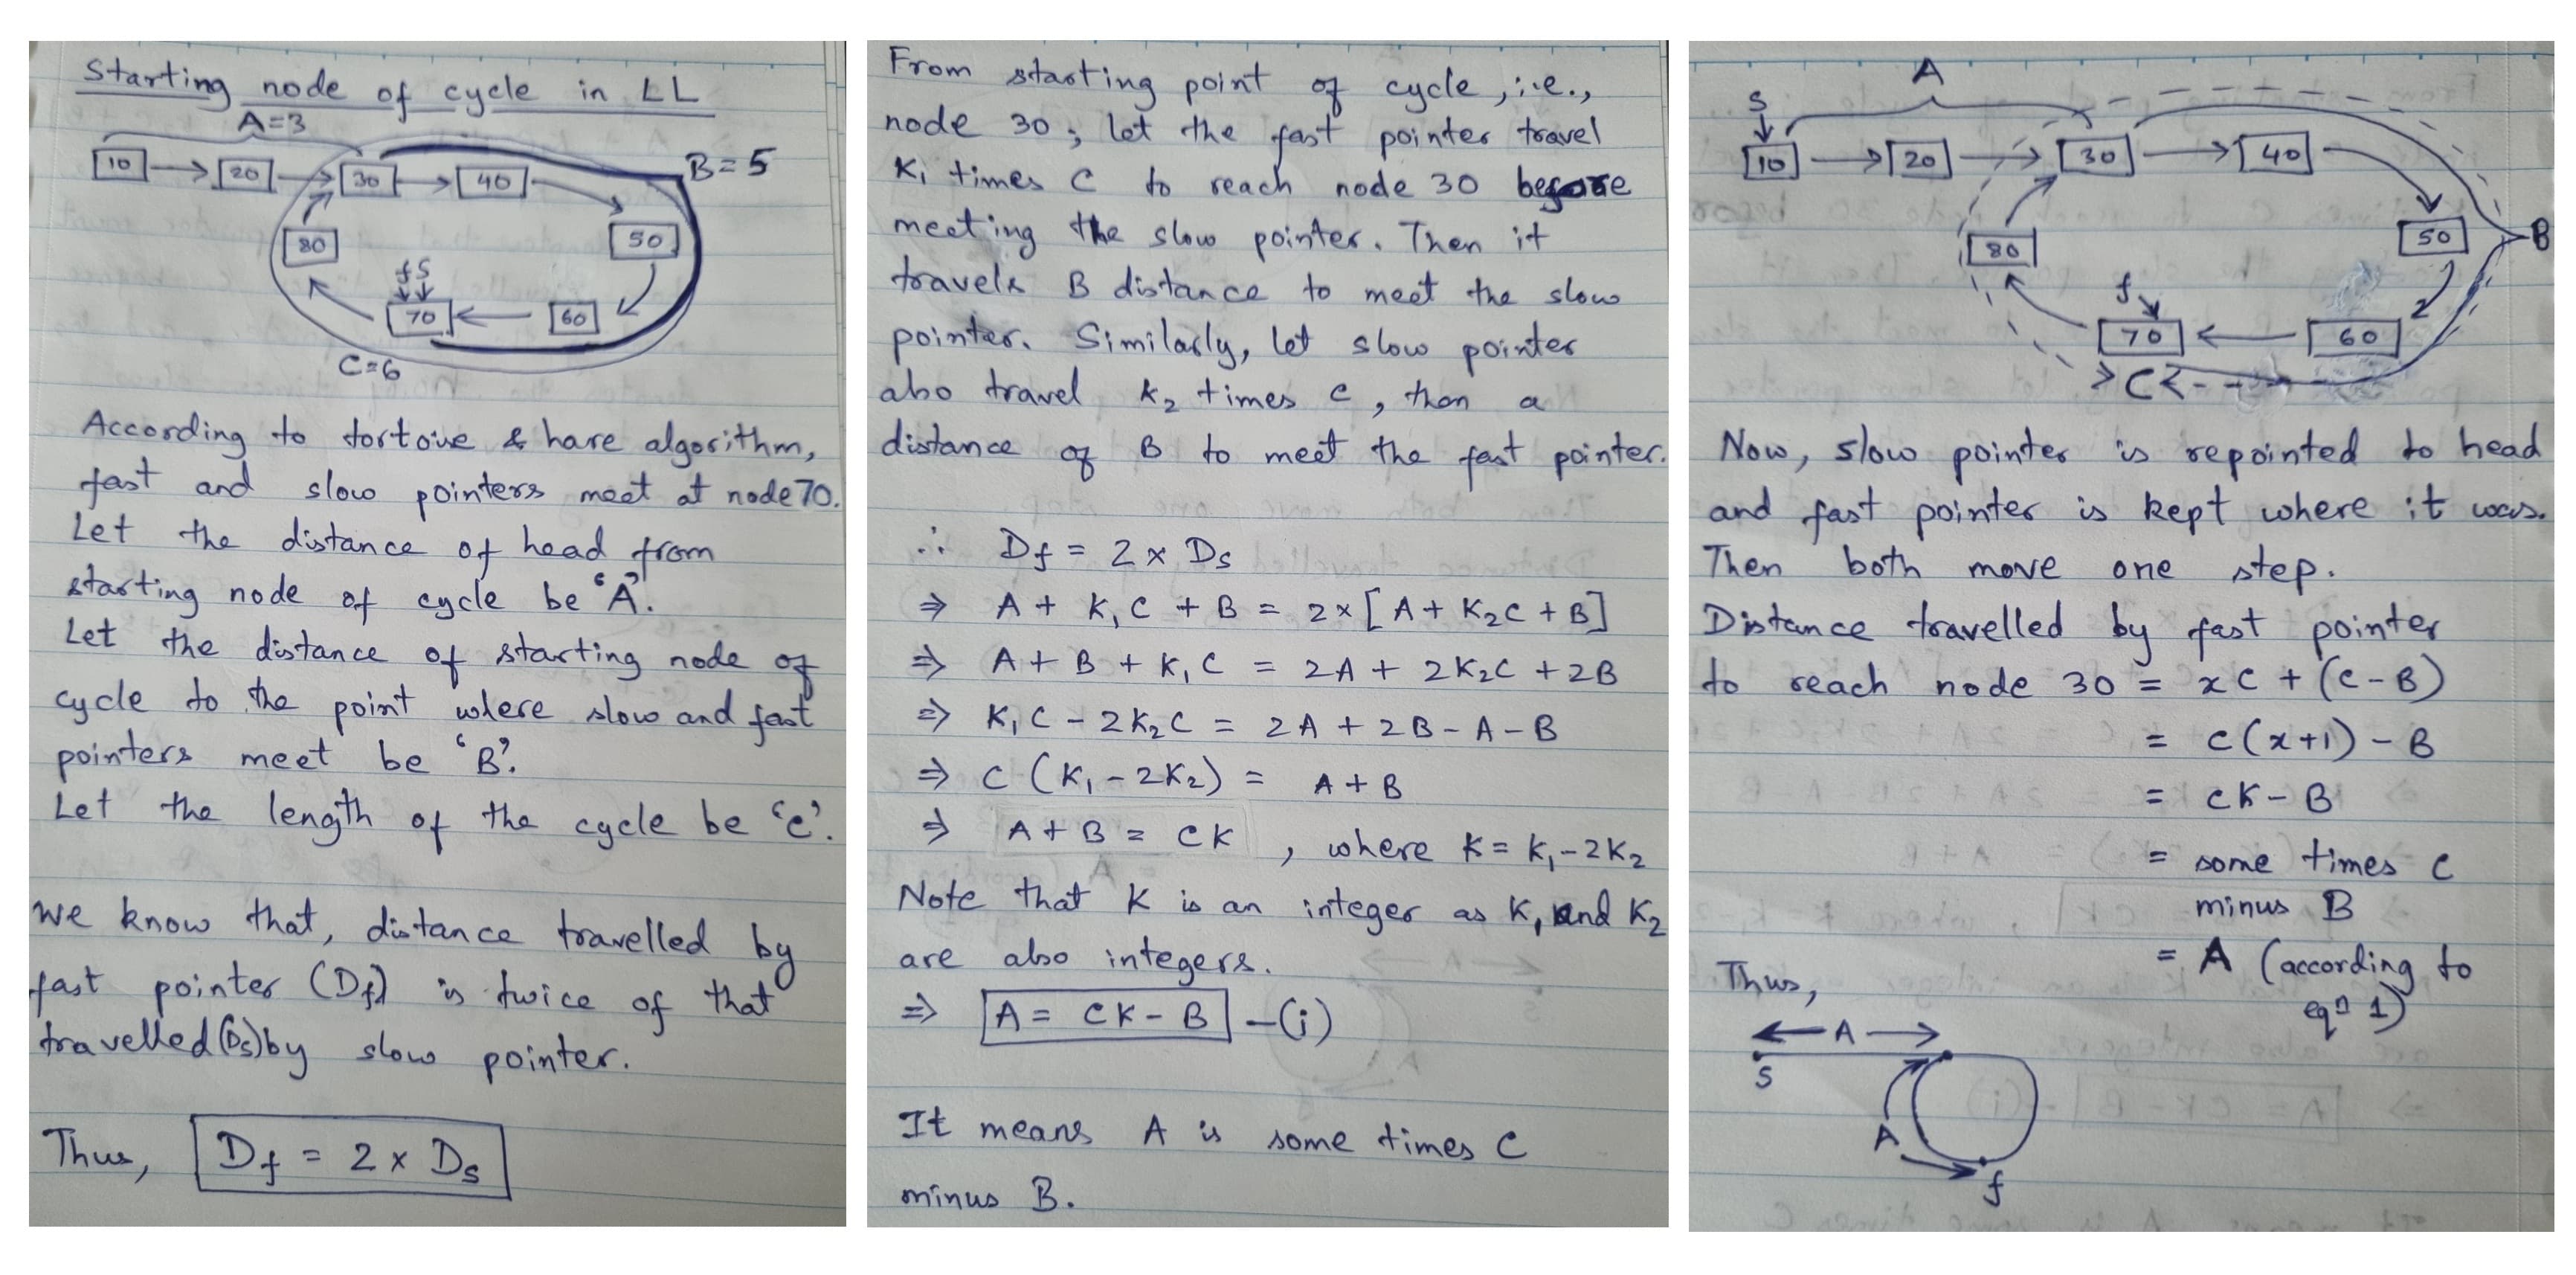 Starting node of cycle in LL
A=3
10 20 30 40
B=5
80 50
f S
70 60
C=6
According to tortoise & hare algorithm,
fast and slow pointers meet at node 70.
Let the distance of head from
starting node of cycle be 'A'.
Let the distance of starting node of
cycle to the point where slow and fast
pointers meet be 'B'.
Let the length of the cycle be 'C'.
We know that, distance travelled by
fast pointer (Df) is twice of that
travelled (Ds) by slow pointer.
Thus, Df = 2 x Ds
From starting point of cycle, i.e.,
node 30, let the fast pointer travel
K₁ times C to reach node 30 before
meeting the slow pointer. Then it
travels B distance to meet the slow
pointer. Similarly, let slow pointer
also travel K₂ times C, then a
distance of B to meet the fast pointer.
∴ Df = 2 x Ds
⇒ A + K₁C + B = 2x[A + K₂C + B]
⇒ A + B + K₁C = 2A + 2K₂C + 2B
⇒ K₁C - 2K₂C = 2A + 2B - A - B
⇒ C (K₁ - 2K₂) = A + B
⇒ A + B = CK , where K = K₁ - 2K₂
Note that K is an integer as K₁ and K₂
are also integers.
⇒ A = CK - B - (i)
It means A is some times C
minus B.
A
S
10 20 30 40
80 50 B
f
70 60
C
Now, slow pointer is repointed to head
and fast pointer is kept where it was.
Then both move one step.
Distance travelled by fast pointer
to reach node 30 = xC + (C-B)
= C(x+1) - B
= CK - B
= some times C
minus B
= A (according to
eqn 1)
Thus,
A
S
A
f